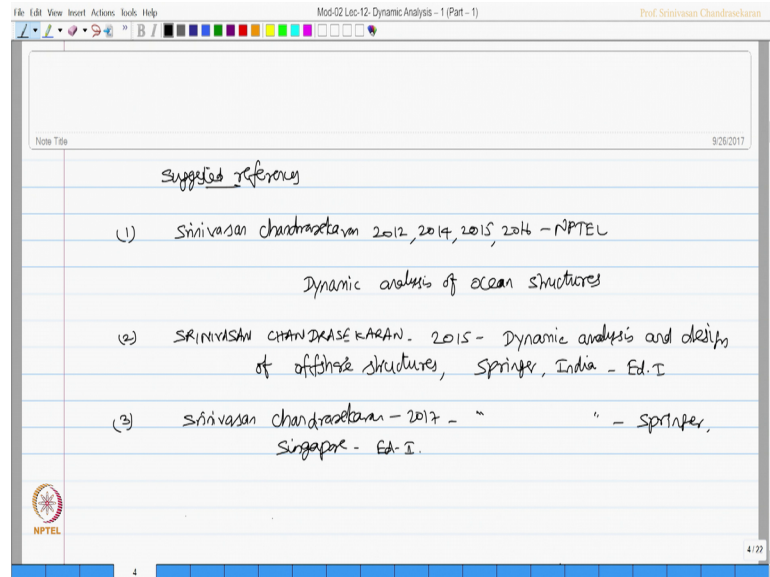 File Edit View Insert Actions Tools Help
Mod-02 Lec-12- Dynamic Analysis – 1 (Part – 1)
Prof. Srinivasan Chandrasekaran
B I
Note Title
9/26/2017
Suggested references
(1) Srinivasan Chandrasekaran 2012, 2014, 2015, 2016 - NPTEL
Dynamic analysis of ocean structures
(2) SRINIVASAN CHANDRASEKARAN - 2015 - Dynamic analysis and design
of offshore structures, Springer, India - Ed. I
(3) Srinivasan Chandrasekaran - 2017 - " " - Springer,
Singapore - Ed-I.
NPTEL
4/22
4